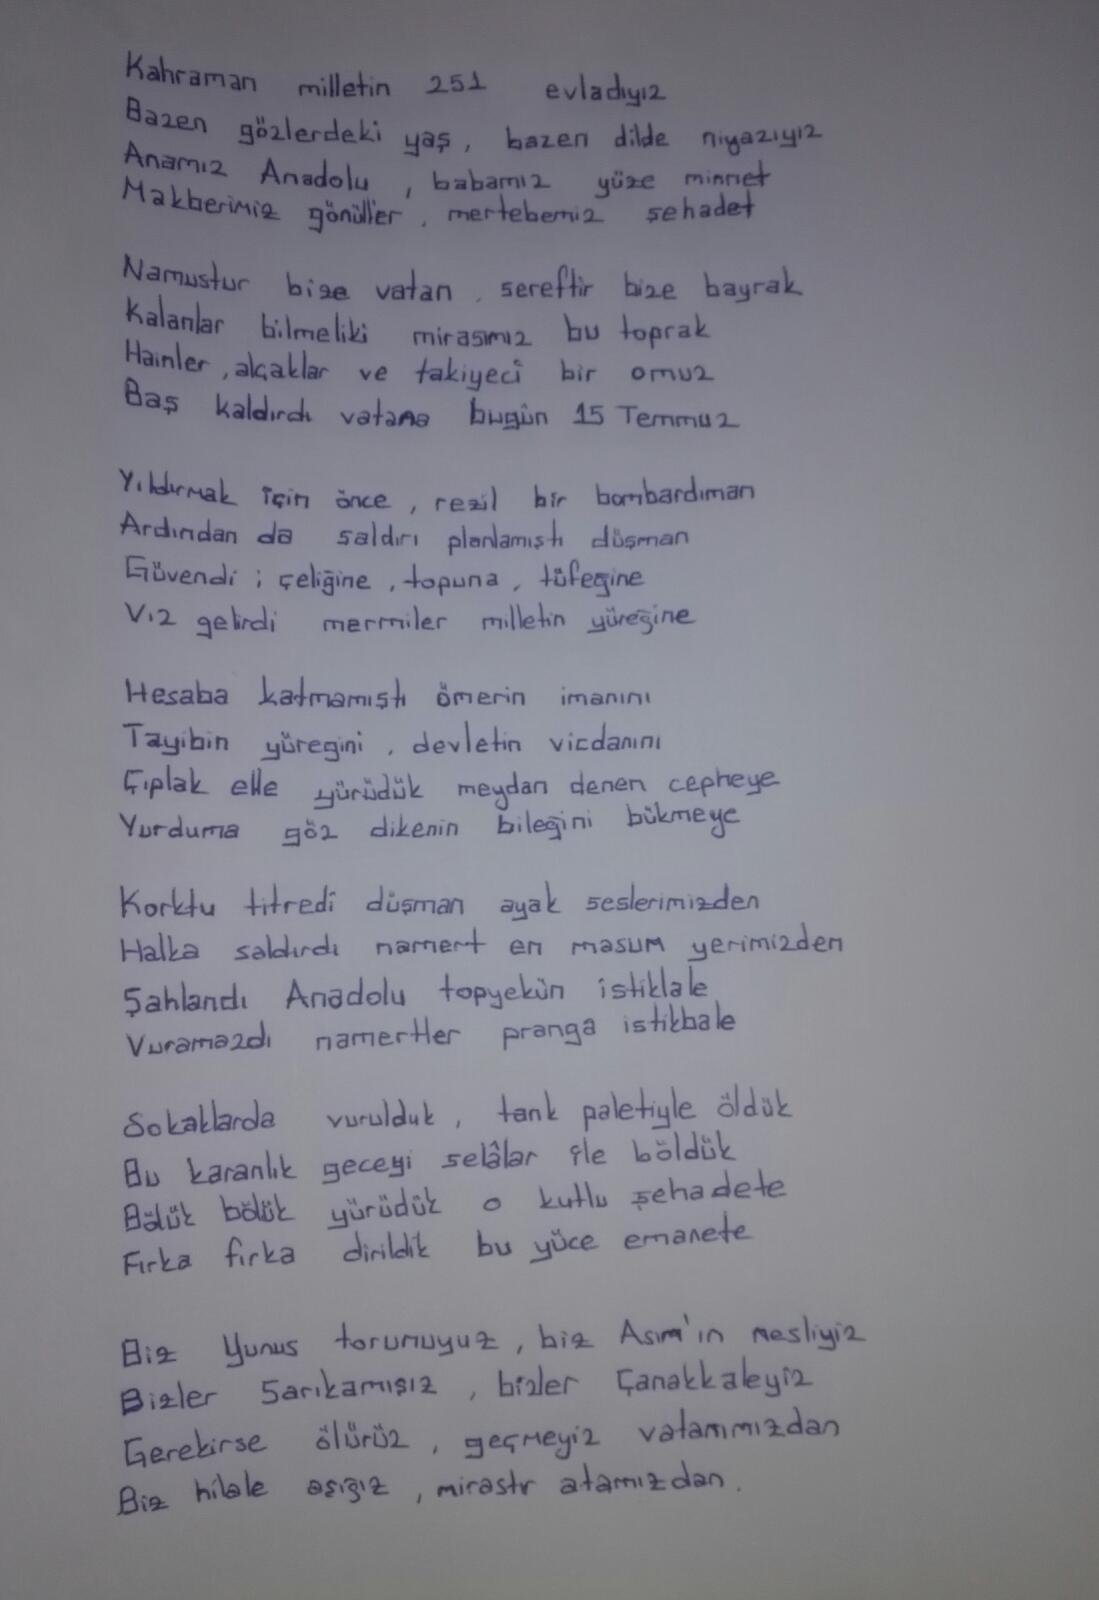 Kahraman milletin 251 evladıyız
Bazen gözlerdeki yaş, bazen dilde niyazıyız
Anamız Anadolu, babamız yüze minnet
Makberimiz gönüller, mertebemiz şehadet
Namustur bize vatan, sereftir bize bayrak
Kalanlar bilmeliki mirasımız bu toprak
Hainler, alçaklar ve takiyeci bir omuz
Baş kaldırdı vatana bugün 15 Temmuz
Yıldırmak için önce, rezil bir bombardıman
Ardından da saldırı planlamıştı düşman
Güvendi; çeliğine, topuna, tüfeğine
Vız gelirdi mermiler milletin yüreğine
Hesaba katmamıştı ömerin imanını
Tayibin yüregini, devletin vicdanını
Çıplak elle yürüdük meydan denen cepheye
Yurduma göz dikenin bileğini bükmeye
Korktu titredi düşman ayak seslerimizden
Halka saldırdı namert en masum yerimizden
Şahlandı Anadolu topyekün istiklale
Vuramazdı namertler pranga istikbale
Sokaklarda vurulduk, tank paletiyle öldük
Bu karanlık geceyi selâlar ile böldük
Bölük bölük yürüdük o kutlu şehadete
Fırka fırka dirildik bu yüce emanete
Biz Yunus torunuyuz, biz Asım'ın nesliyiz
Bizler Sarıkamışız, bizler Çanakkaleyiz
Gerekirse ölürüz, geçmeyiz vatanımızdan
Biz hilale aşığız, mirastır atamızdan.